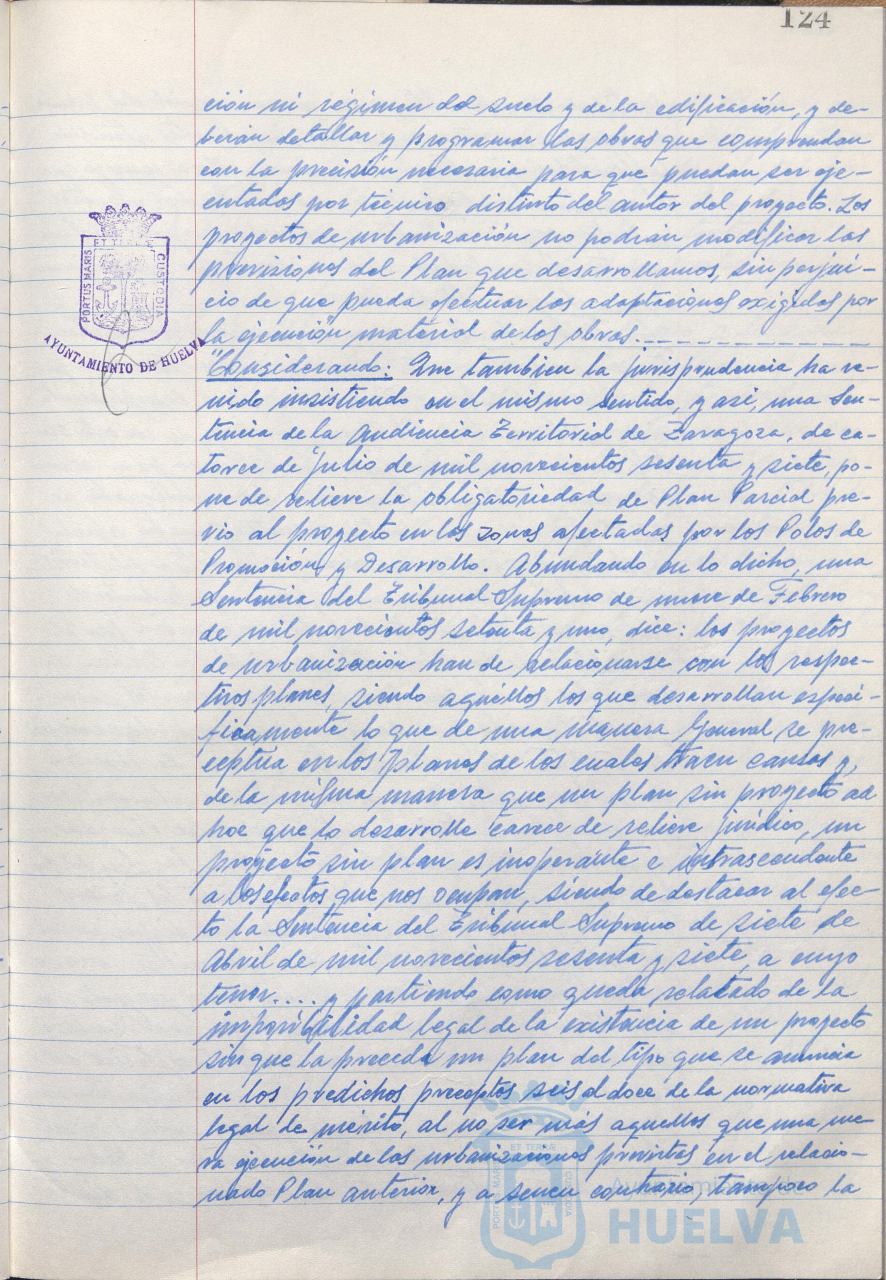 124
ción ni régimen del suelo y de la edificación, y de-
berán detallar y programar las obras que comprendan
con la precisión necesaria para que puedan ser eje-
cutados por técnico distinto del autor del proyecto. Los
proyectos de urbanización no podrán modificar las
previsiones del Plan que desarrollamos, sin perjui-
cio de que pueda efectuar las adaptaciones exigidas por
la ejecución material de las obras.
"Considerando: Que tambien la jurisprudencia ha ve-
nido insistiendo en el mismo sentido, y así, una Sen-
tencia de la Audiencia Territorial de Zaragoza, de ca-
torce de Julio de mil novecientos sesenta y siete, po-
ne de relieve la obligatoriedad de Plan Parcial pre-
vio al proyecto en las zonas afectadas por los Polos de
Promoción y Desarrollo. Abundando en lo dicho, una
Sentencia del Tribunal Supremo de nueve de Febrero
de mil novecientos setenta y uno, dice: los proyectos
de urbanización han de relacionarse con los respec-
tivos planes, siendo aquéllos los que desarrollan especí-
ficamente lo que de una manera General se pre-
ceptúa en los Planes de los cuales traen causas y,
de la misma manera que un plan sin proyecto ad
hoc que lo desarrolle carece de relieve jurídico, un
proyecto sin plan es inoperante e intrascendente
a los efectos que nos ocupan, siendo de destacar al efec-
to la Sentencia del Tribunal Supremo de siete de
Abril de mil novecientos sesenta y siete, a cuyo
tenor.... y partiendo como queda relatado de la
imposibilidad legal de la existencia de un proyecto
sin que la preceda un plan del tipo que se anuncia
en los predichos preceptos seis al doce de la normativa
legal de mérito, al no ser más aquellos que una me-
ra ejecución de las urbanizaciones previstas en el relacio-
nado Plan anterior, y a sensu contrario, tampoco la
PORTUS MARIS ET TERRÆ CUSTODIA
AYUNTAMIENTO DE HUELVA
PORTUS MARIS ET TERRÆ CUSTODIA
Ayuntamiento de
HUELVA